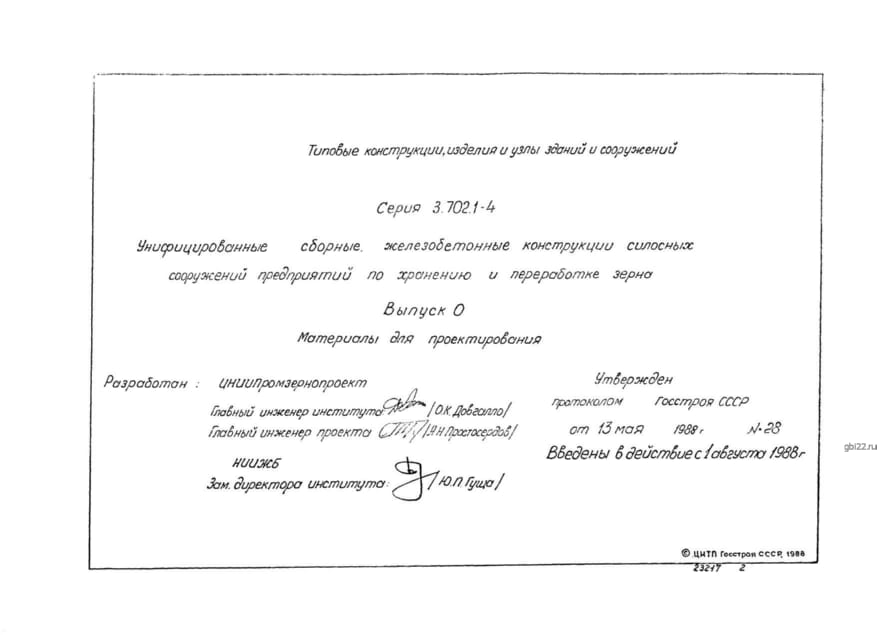 Типовые конструкции, изделия и узлы зданий и сооружений
Серия 3.702.1-4
Унифицированные сборные, железобетонные конструкции силосных
сооружений предприятий по хранению и переработке зерна
Выпуск 0
Материалы для проектирования
Разработан: ЦНИИПромзернопроект
Главный инженер института /О.К. Довгалло/
Главный инженер проекта Простосердов/
НИИЖБ
Зам. директора института: /Ю.П Гуща/
Утвержден
протоколом Госстроя СССР
от 13 мая 1988 г №28
Введены в действие с 1 августа 1988 г
© ЦИТП Госстроя СССР, 1988
23217 2
gbi22.ru